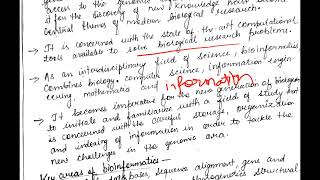 access to the genomic
it for the discovery of new knowledge
central themes of modern biological research.
→ It is concerned with the state-of-the-art computational
tools available to solve biological research problems.
→ As an interdisciplinary field of science, bioinformatics
combines biology, computer science, information engin-
eering, mathematics and information
→ It becomes imperative for the new generation of
to initiate and familiarize with a field of study that
is concerned with the careful storage, organization
and indexing of information in order to tackle the
new challenge in the genomic area.
Key areas of bioinformatics -
databases, sequence alignment, gene and
structural